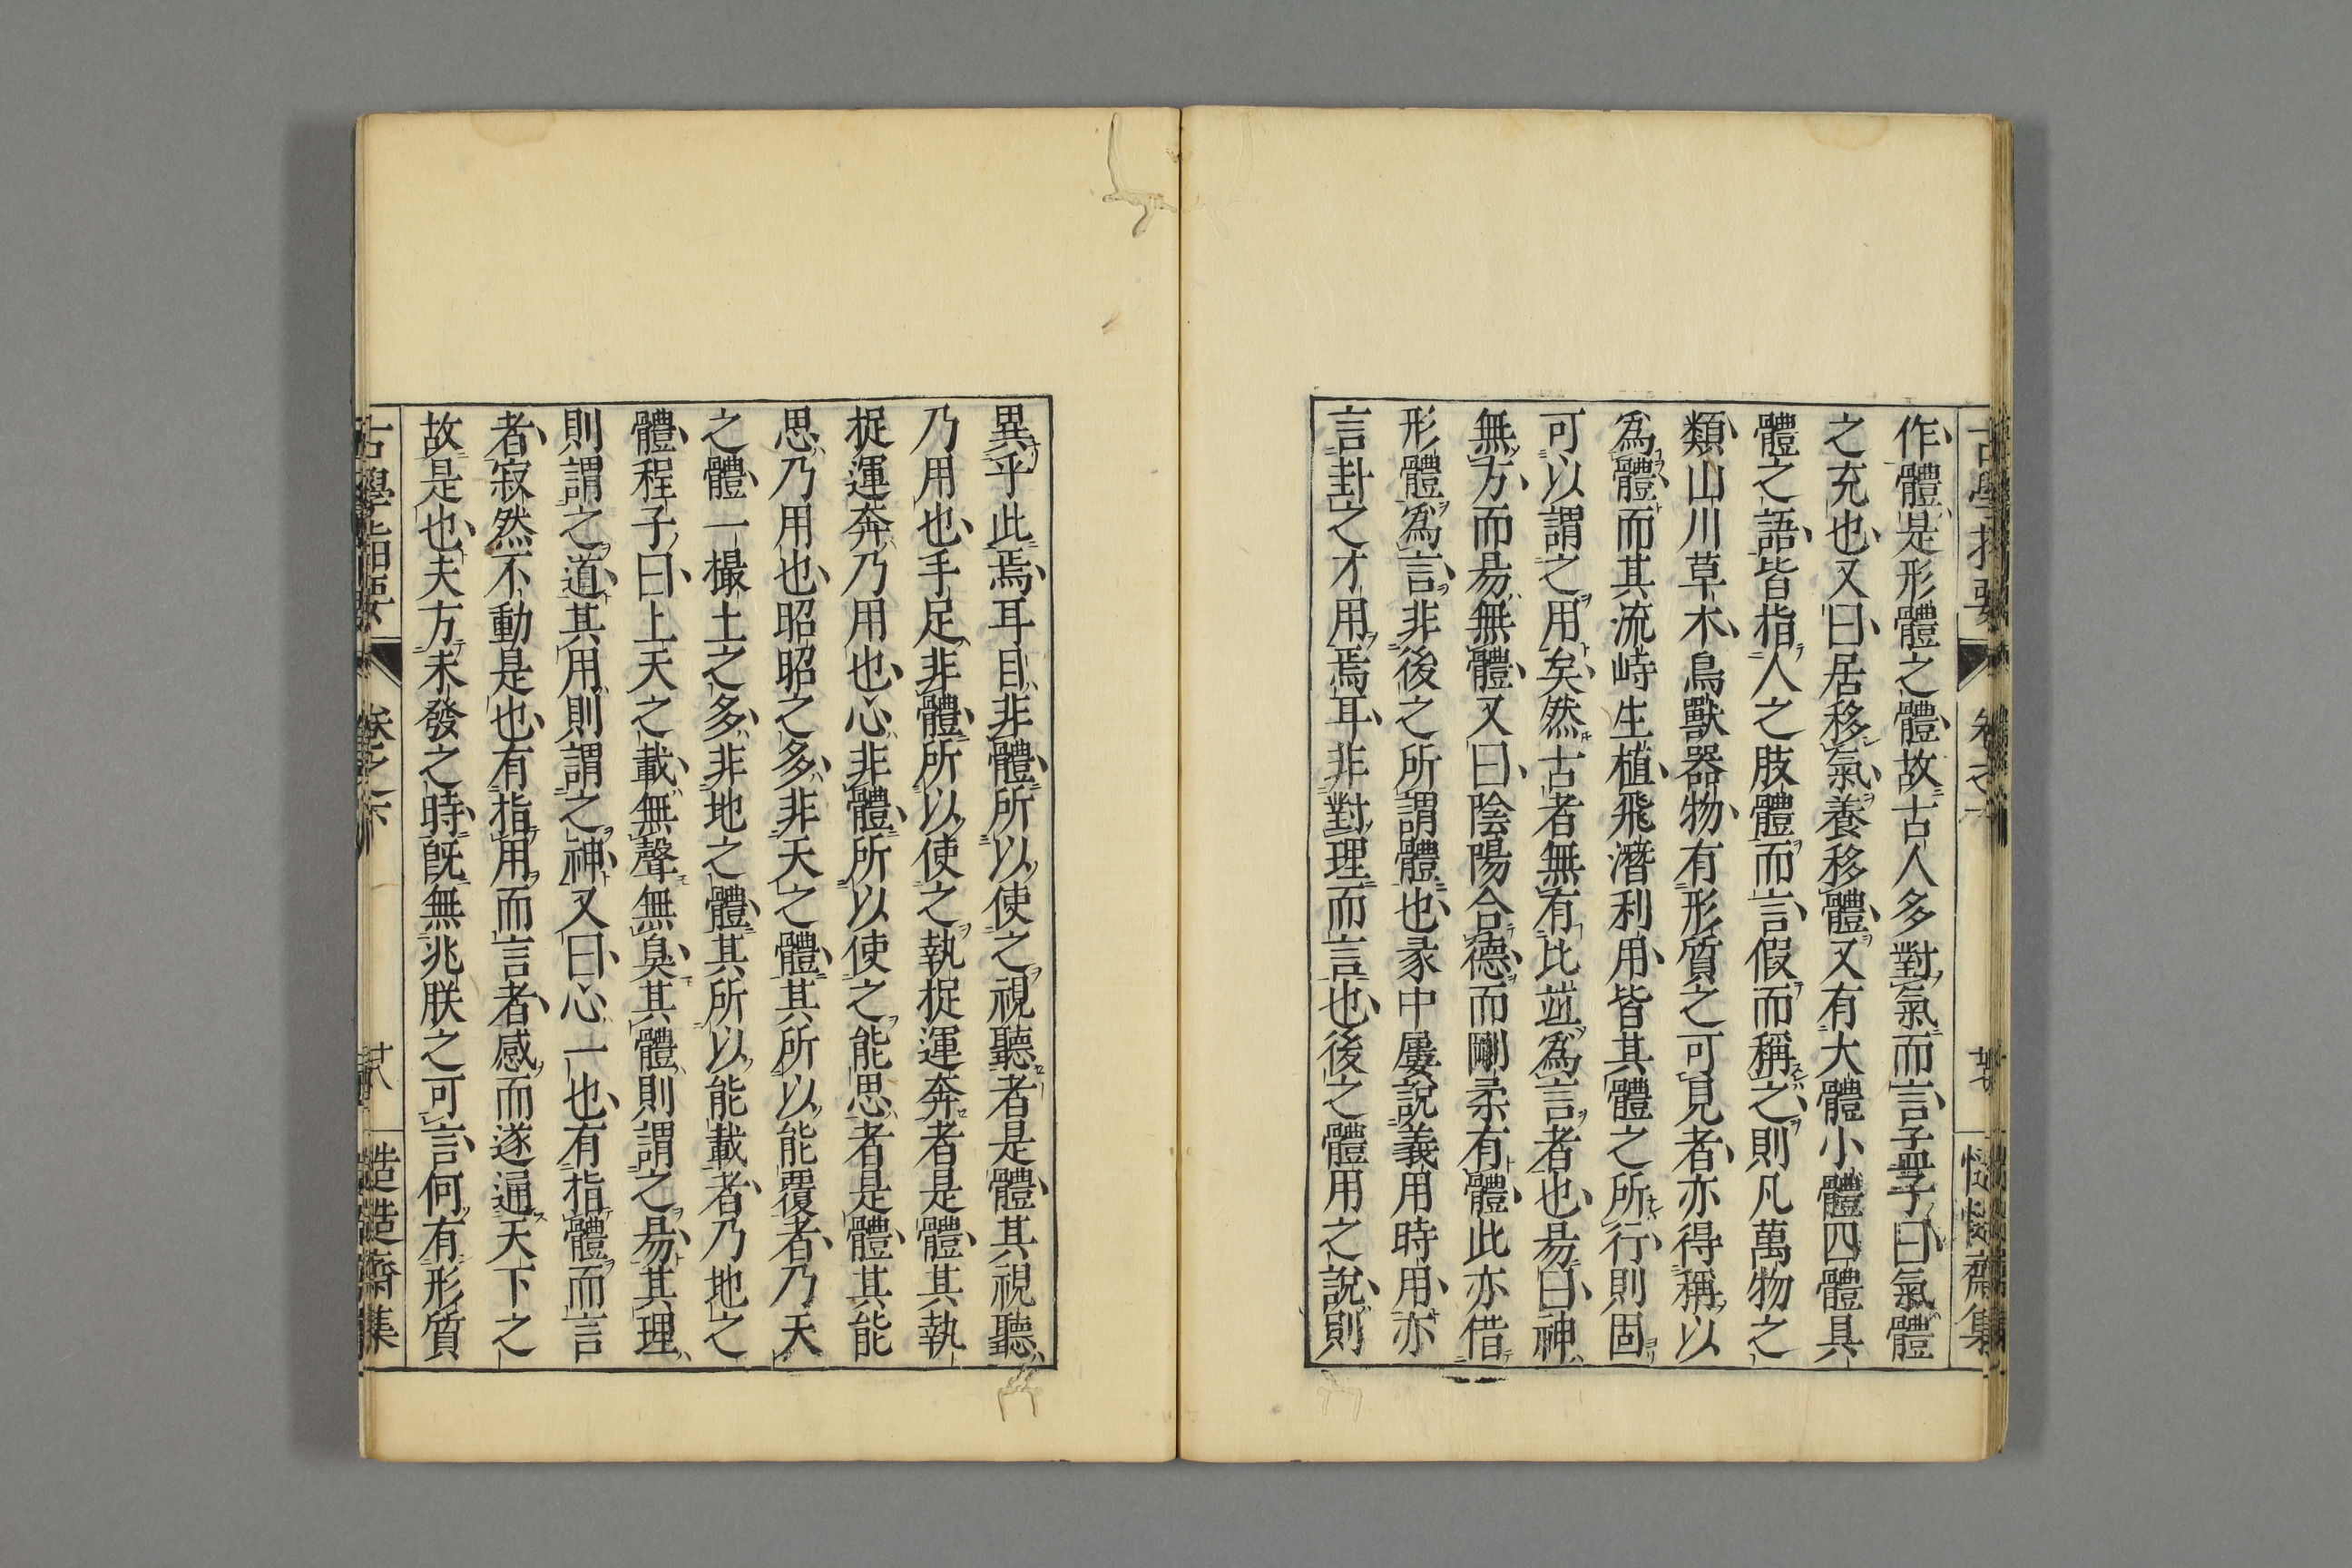 作體是形體之體故古人多對氣而言孟子曰氣體
之充也又曰居移氣養移體又有大體小體四體具
體之語皆指人之肢體而言假而稱之則凡萬物之
類山川草木鳥獸器物有形質之可見者亦得稱以
爲體而其流峙生植飛潛利用皆其體之所行則固
可以謂之用矣然古者無有比竝爲言者也易曰神
無方而易無體又曰陰陽合德而剛柔有體此亦借
形體爲言非後之所謂體也彖中屢說義用時用亦
言卦之才用焉耳非對理而言也後之體用之說則
異乎此焉耳目非體所以使之視聽者是體其視聽
乃用也手足非體所以使之執捉運奔者是體其執
捉運奔乃用也心非體所以使之能思者是體其能
思乃用也昭昭之多非天之體其所以能覆者乃天
之體一撮土之多非地之體其所以能載者乃地之
體程子曰上天之載無聲無臭其體則謂之易其理
則謂之道其用則謂之神又曰心一也有指體而言
者寂然不動是也有指用而言者感而遂通天下之
故是也夫方未發之時既無兆朕之可言何有形質